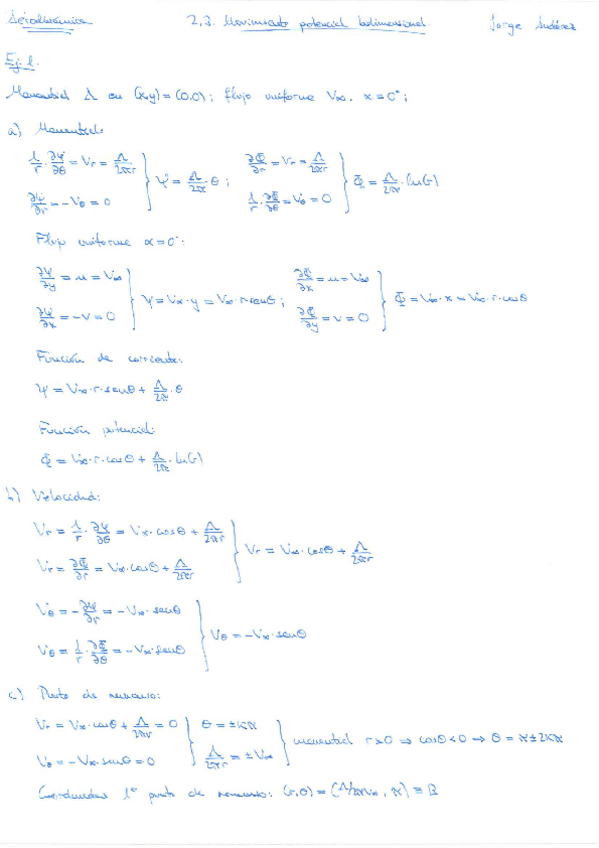 Aerodinámica 2.3. Movimiento potencial bidimensional Jorge
Ej. 1.
Manantial Λ en (x,y)=(0,0); flujo uniforme V∞, α=0°;
a) Manantial:
1/r · ∂Ψ/∂θ = Vr = Λ/2πr } Ψ = Λ/2π · θ; ∂Φ/∂r = Vr = Λ/2πr } Φ = Λ/2π · ln(r)
∂Ψ/∂r = -Vθ = 0 1/r · ∂Φ/∂θ = Vθ = 0
Flujo uniforme α=0°:
∂Ψ/∂y = u = V∞ } Ψ = V∞·y = V∞·r·senθ; ∂Φ/∂x = u = V∞ } Φ = V∞·x = V∞·r·cosθ
∂Ψ/∂x = -v = 0 ∂Φ/∂y = v = 0
Función de corriente:
Ψ = V∞·r·senθ + Λ/2π · θ
Función potencial:
Φ = V∞·r·cosθ + Λ/2π · ln(r)
b) Velocidad:
Vr = 1/r · ∂Ψ/∂θ = V∞·cosθ + Λ/2πr } Vr = V∞·cosθ + Λ/2πr
Vr = ∂Φ/∂r = V∞·cosθ + Λ/2πr
Vθ = -∂Ψ/∂r = -V∞·senθ } Vθ = -V∞·senθ
Vθ = 1/r · ∂Φ/∂θ = -V∞·senθ
c) Punto de remanso:
Vr = V∞·cosθ + Λ/2πr = 0 } θ = ±kπ } manantial r>0 ⇒ cosθ<0 ⇒ θ = π±2kπ
Vθ = -V∞·senθ = 0 Λ/2πr = ±V∞
Coordenadas 1º punto de remanso: (r,θ) = (Λ/2πV∞, π) ≡ B